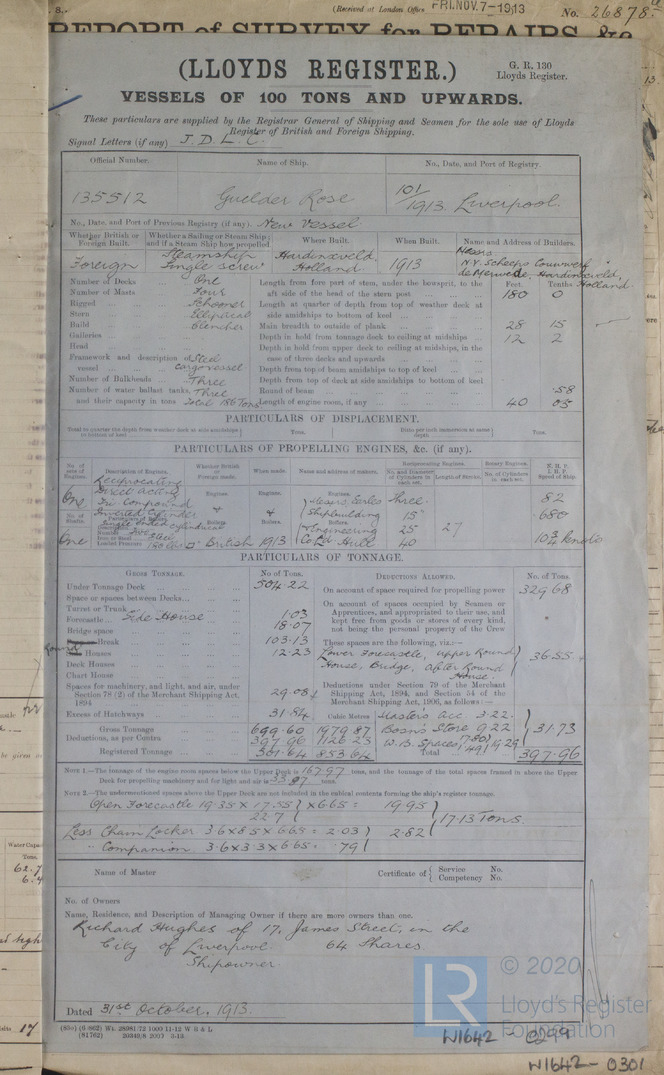 (Received at London Office FRI.NOV.7-1913 No. 26878
REPORT of SURVEY for REPAIRS, &c
(LLOYDS REGISTER.)
G. R. 130
Lloyds Register.
VESSELS OF 100 TONS AND UPWARDS.
These particulars are supplied by the Registrar General of Shipping and Seamen for the sole use of Lloyds
Register of British and Foreign Shipping.
Signal Letters (if any) J. D. L. C.
Official Number. Name of Ship. No., Date, and Port of Registry.
135512 Guelder Rose 101/1913. Liverpool.
No., Date, and Port of Previous Registry (if any). New Vessel
Whether British or Foreign Built. Whether a Sailing or Steam Ship; and if a Steam Ship how propelled. Where Built. When Built. Name and Address of Builders.
Foreign Steamship Single screw Hardinxveld, Holland 1913 Messrs. de Merwede, Hardinxveld, Holland
Number of Decks One Length from fore part of stem, under the bowsprit, to the Feet. Tenths
Number of Masts Four aft side of the head of the stern post 180 0
Rigged Schooner Length at quarter of depth from top of weather deck at
Stern Elliptical side amidships to bottom of keel
Build Clencher Main breadth to outside of plank 28 15
Galleries Depth in hold from tonnage deck to ceiling at midships 12 2
Head Depth in hold from upper deck to ceiling at midships, in the
Framework and description of Steel case of three decks and upwards
vessel cargo vessel Depth from top of beam amidships to top of keel
Number of Bulkheads Three Depth from top of deck at side amidships to bottom of keel
Number of water ballast tanks, Three Round of beam .58
and their capacity in tons Total 186 Tons Length of engine room, if any 40 05
PARTICULARS OF DISPLACEMENT.
Total to quarter the depth from weather deck at side amidships to bottom of keel Tons. Ditto per inch immersion at same depth Tons.
PARTICULARS OF PROPELLING ENGINES, &c. (if any).
No. of sets of Engines. Description of Engines. Whether British or Foreign made. When made. Name and address of makers. Reciprocating Engines. Rotary Engines. N.H.P. I.H.P. Speed of Ship.
No. and Diameter of Cylinders in each set. Length of Stroke. No. of Cylinders in each set.
Reciprocating
One Direct acting Engines. Engines. Engines. Three 82
Tri Compound Messrs. Earles 15" 680
Inverted Cylinder Shipbuilding
No. of Shafts. Particulars of Boilers. Boilers. Boilers. Boilers.
Single ended cylindrical & Engineering 25 27
One Steel 180 lbs British 1913 Co Ld Hull 40 Knots
PARTICULARS OF TONNAGE.
GROSS TONNAGE. No of Tons. DEDUCTIONS ALLOWED. No. of Tons
Under Tonnage Deck 504.22 On account of space required for propelling power 329.68
Space or spaces between Decks On account of spaces occupied by Seamen or
Turret or Trunk Apprentices, and appropriated to their use, and
Forecastle Side House 1.03 kept free from goods or stores of every kind,
Bridge space 18.07 not being the personal property of the Crew
Break 103.13 These spaces are the following, viz.:—
Round Houses 12.23 Lower Forecastle, upper Round 36.55
Deck Houses House, Bridge, after Round
Chart House House.
Spaces for machinery, and light, and air, under Deductions under Section 79 of the Merchant
Section 78 (2) of the Merchant Shipping Act, 29.08 Shipping Act, 1894, and Section 54 of the
1894 Merchant Shipping Act, 1906, as follows:—
Excess of Hatchways 31.84 Cubic Metres Masters acc 3.22
Gross Tonnage 699.60 1979.87 Bosns Store 9.22 31.73
Deductions, as per Contra 397.96 1126.23 W.B. Spaces 19.29
Registered Tonnage 301.64 853.64 Total 397.96
NOTE 1.—The tonnage of the engine room spaces below the Upper Deck is 167.97 tons, and the tonnage of the total spaces framed in above the Upper
Deck for propelling machinery and for light and air is tons.
NOTE 2.—The undermentioned spaces above the Upper Deck are not included in the cubical contents forming the ship's register tonnage.
Open Forecastle 19.35 x 17.55 x 6.65 = 19.95
22.7 17.13 Tons.
Less Chain Locker 3.6 x 8.5 x 6.65 = 2.03 2.82
" Companion 3.6 x 3.3 x 6.65 = .79
Name of Master Certificate of { Service No.
Competency No.
No. of Owners
Name, Residence, and Description of Managing Owner if there are more owners than one.
Richard Hughes of 17, James Street, in the
City of Liverpool 64 Shares
Shipowner.
Dated 31st October, 1913.
LR © 2020
Lloyd's Register
Foundation
W1642-0299
W1642-0301